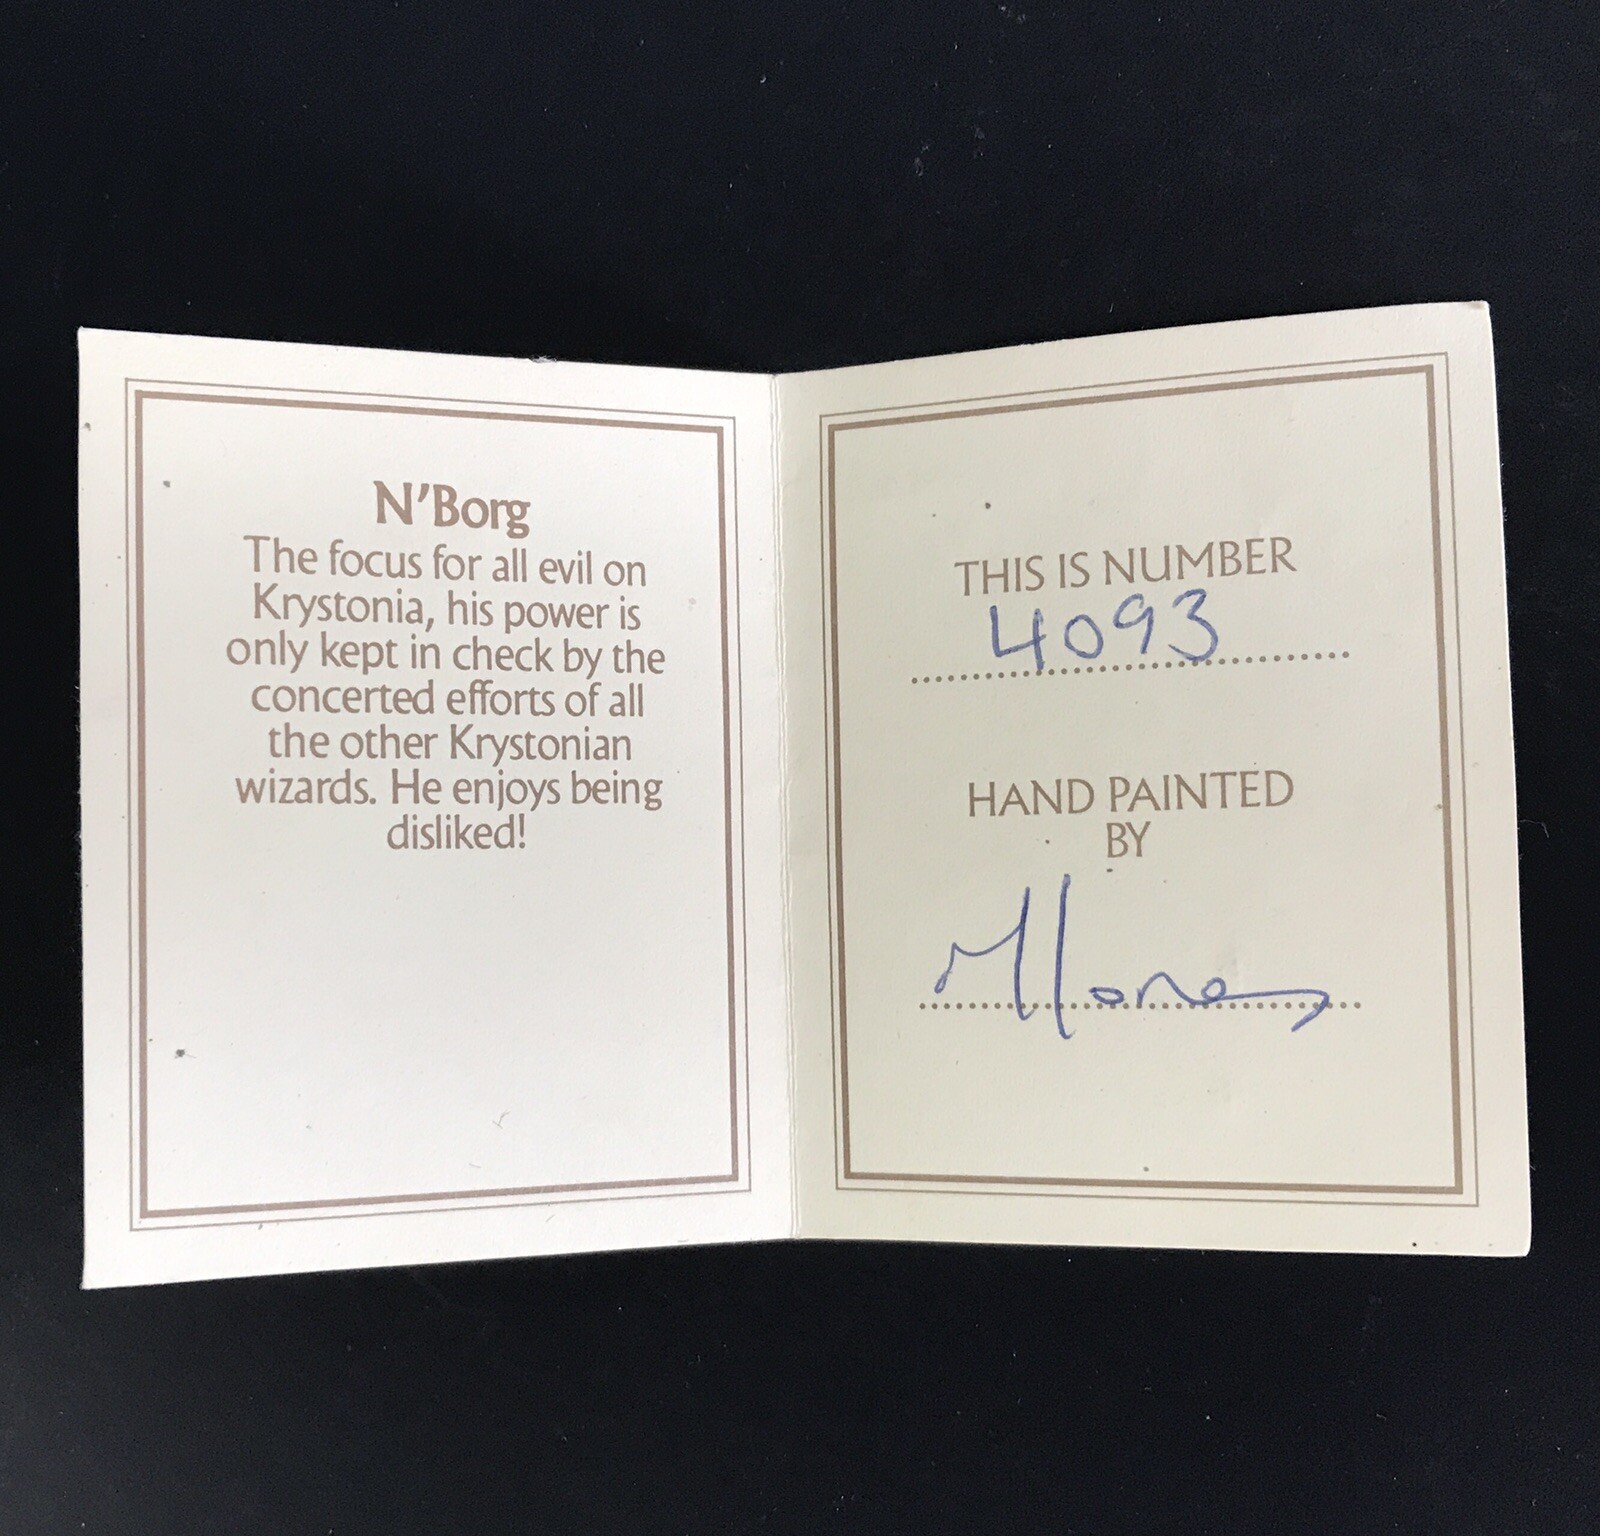 N'Borg
The focus for all evil on
Krystonia, his power is
only kept in check by the
concerted efforts of all
the other Krystonian
wizards. He enjoys being
disliked!
THIS IS NUMBER
4093
HAND PAINTED
BY